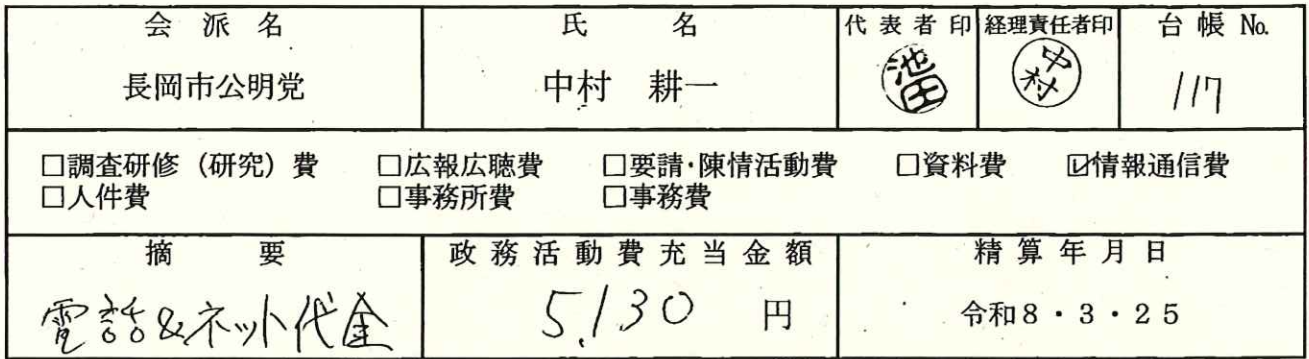 会派名 氏名 代表者印 経理責任者印 台帳No.
長岡市公明党 中村 耕一 池田 中村 117
□調査研修（研究）費 □広報広聴費 □要請・陳情活動費 □資料費 ☑情報通信費
□人件費 □事務所費 □事務費
摘要 政務活動費充当金額 精算年月日
電話&ネット代金 5,130 円 令和8・3・25